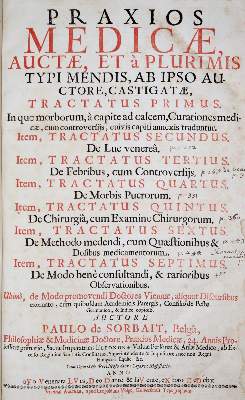 PRAXIOS
MEDICÆ,
AUCTÆ, ET à PLURIMIS
TYPI MENDIS, AB IPSO AU-
CTORE, CASTIGATÆ,
TRACTATUS PRIMUS.
In quo morborum, à capite ad calcem, Curationes medi-
cæ, cum controversiis, cuivis capiti annexis traduntur.
Item, TRACTATUS SECUNDUS.
De Lue venereâ.
Item, TRACTATUS TERTIUS.
De Febribus, cum Controversiis,
Item, TRACTATUS QUARTUS.
De Morbis Puerorum.
Item, TRACTATUS QUINTUS.
De Chirurgiâ, cum Examine Chirurgorum,
Item, TRACTATUS SEXTUS.
De Methodo medendi, cum Quæstionibus &
Dosibus medicamentorum.
Item, TRACTATUS SEPTIMUS.
De Modo benè consultandi, & rarioribus
Observationibus.
de Modo promovendi Doctores Viennæ, aliquot Discursibus
AUCTORE
PAULO de SORBAIT, Belgâ,
Philosophiæ & Medicinæ Doctore, Praxeos Medicæ, 24. Annis Pro-
ANNO